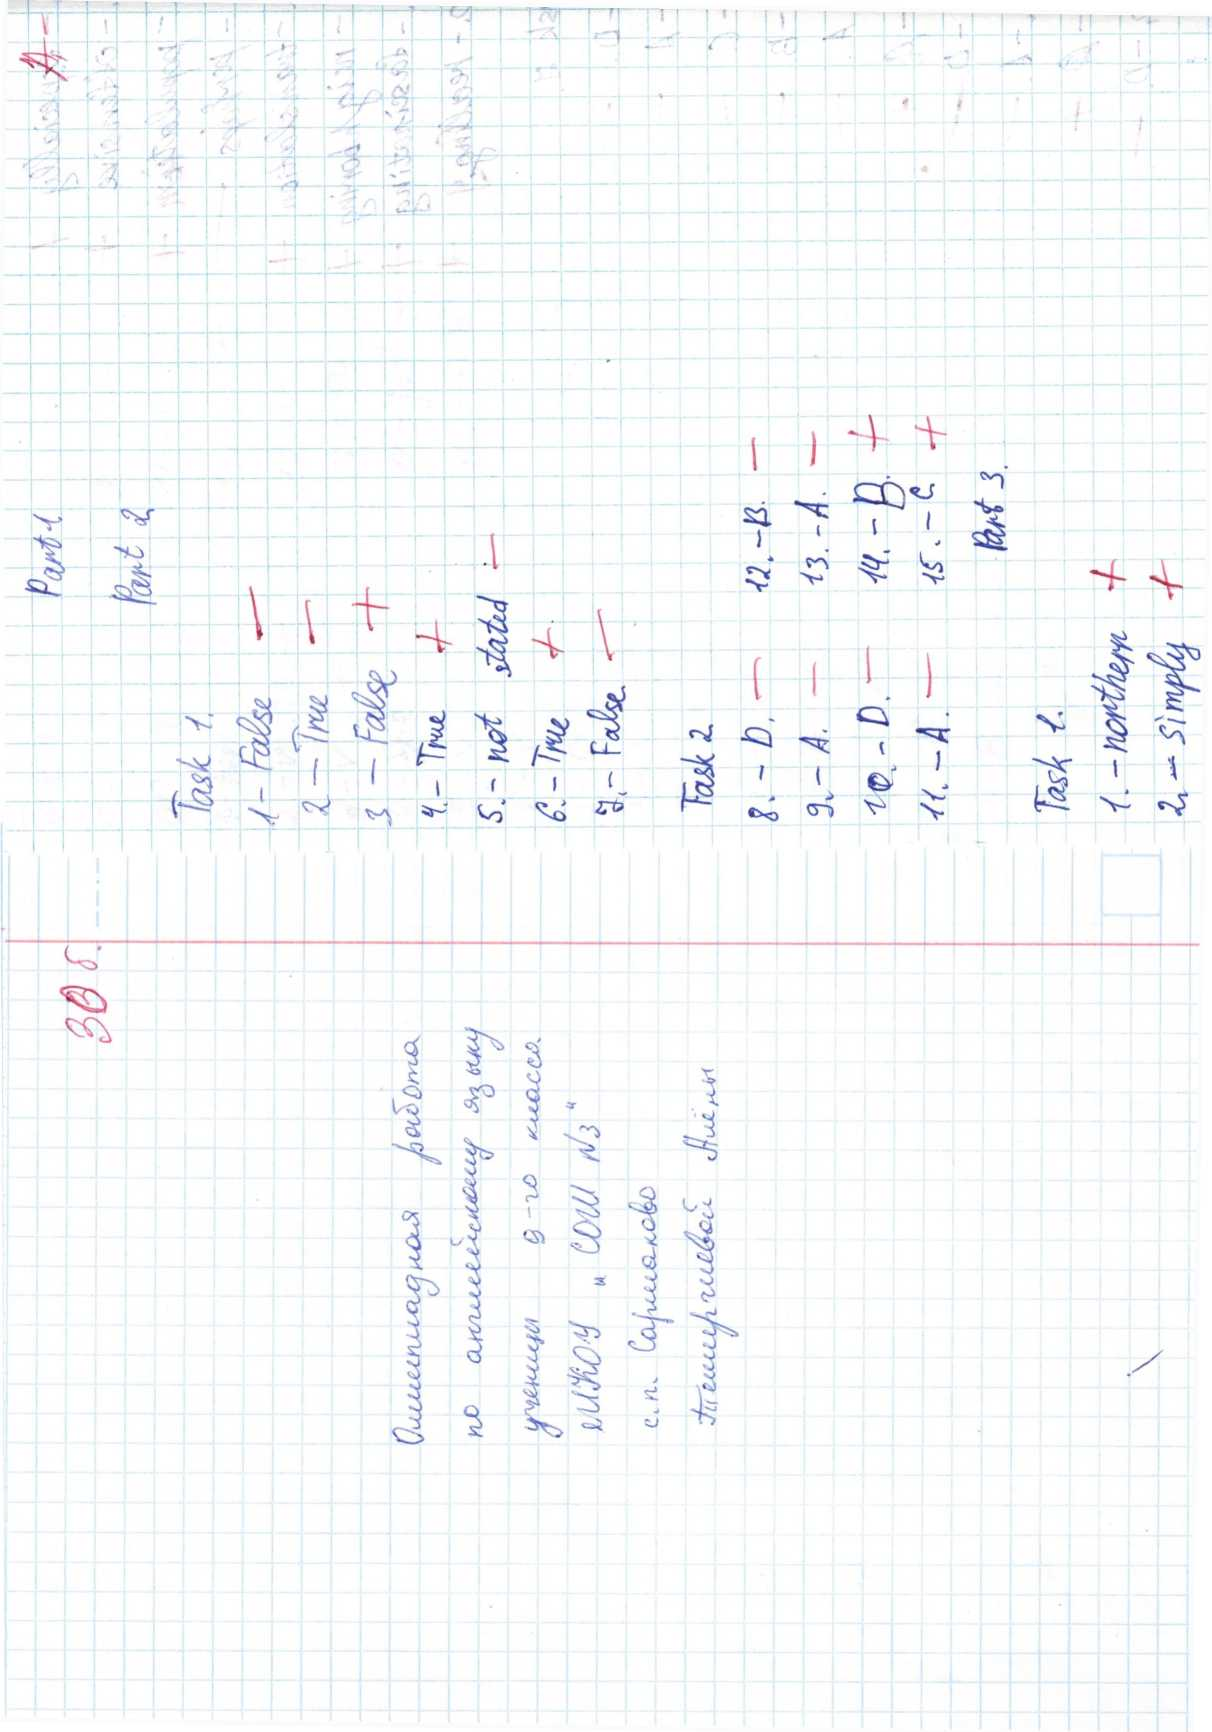 30 б.
Олимпиадная работа
по английскому языку
ученицы 9-го класса
МКОУ „СОШ №3"
с.п. Сармаково
Темиргиевой Алёны
Part 1
Part 2
Task 1.
1 – False –
2 – True –
3 – False +
4. – True +
5. – not stated –
6. – True +
7. – False. –
Task 2
8. – D. – 12. – B. –
9. – A. – 13. – A. –
10. – D. – 14. – B. +
11. – A. – 15. – C. +
Part 3.
Task 1.
1. – northern +
2. – simply +